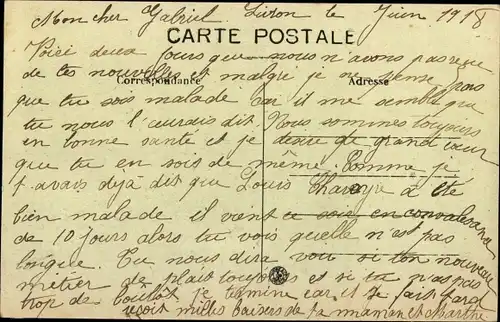 Mon cher Gabriel Livron le Juin 1918
CARTE POSTALE
Voici deux jours que nous n'avons pas reçu
de tes nouvelles et malgré je ne pense pas
Correspondance Adresse
que tu sois malade car il me semble que
tu nous l'aurais dit. Nous sommes toujours
en bonne santé et je de grand cœur
que tu en sois de même, Comme je
t'avais déjà dit que Louis a été
bien malade il vient ce soir en convalescence
de 10 jours alors tu vois quelle n'est pas
longue. Tu nous dira voir si ton nouveau
métier de plait toujours et si tu n'as pas
trop de boulot je termine car il se fait tard
reçoit milles baisers de ta maman et Marthe